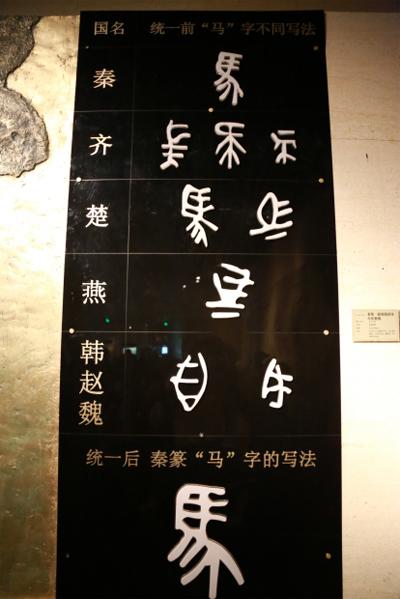 国名 统一前“马”字不同写法
秦 馬
齐
楚 馬
燕
韩
赵
魏
统一后 秦篆“马”字的写法
馬